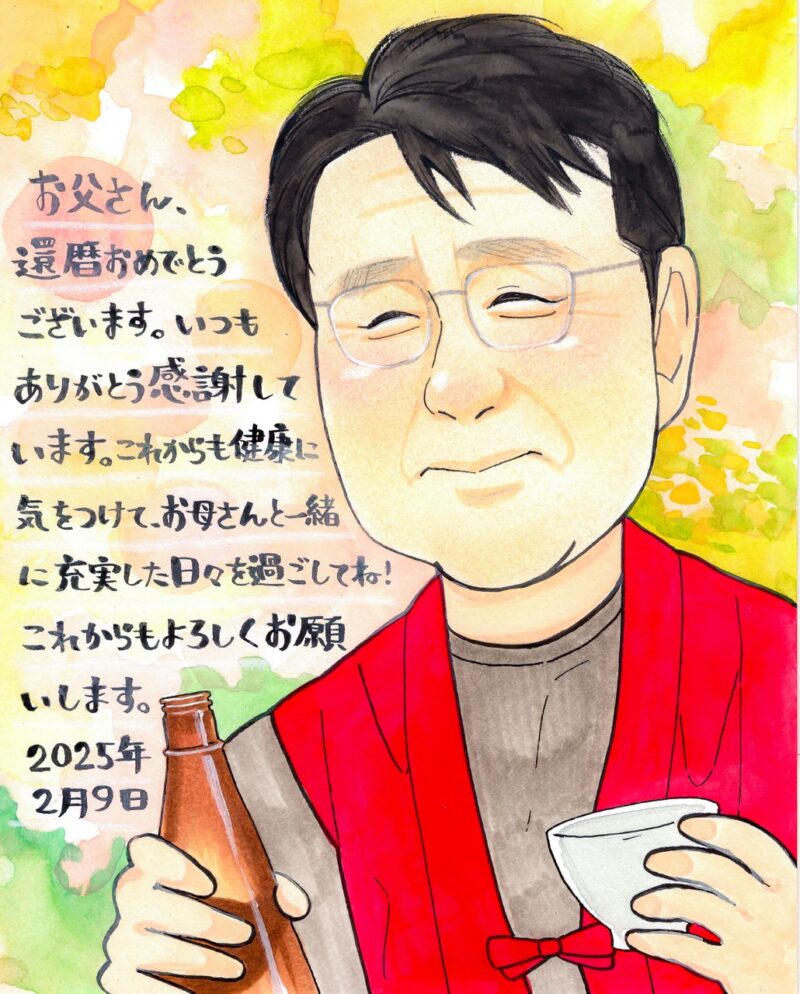 お父さん、
還暦おめでとう
ございます。いつも
ありがとう感謝して
います。これからも健康に
気をつけて、お母さんと一緒
に充実した日々を過ごしてね!
これからもよろしくお願
いします。
2025年
2月9日